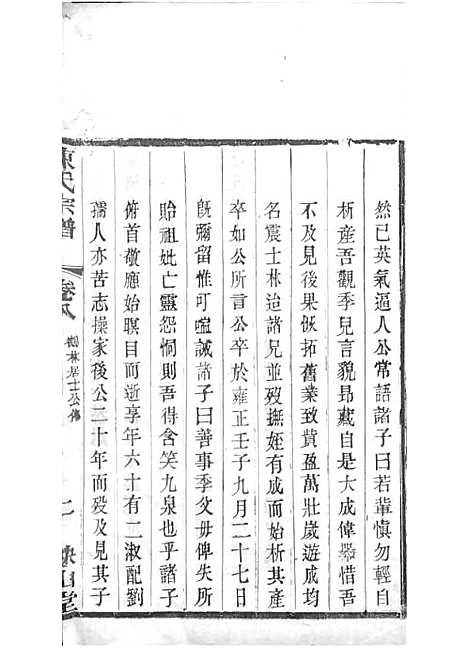 然已英氣逼人公常語諸子曰若輩慎勿輕自
析產吾觀季兒言貌昂藏自是大成偉器惜吾
不及見後果恢拓舊業致貲盈萬壯歲遊成均
名震士林迨諸兄並歿撫姪有成而始析其產
卒如公所言公卒於雍正壬子九月二十七日
旣彌留惟叮嚀誡諸子曰善事季父毋俾失所
貽祖妣亡靈怨恫則吾得含笑九泉也乎諸子
俯首敬應始瞑目而逝享年六十有二淑配劉
孺人亦苦志操家後公二十年而歿及見其子
陳氏宗譜
卷八
林居士公傳
七
堂